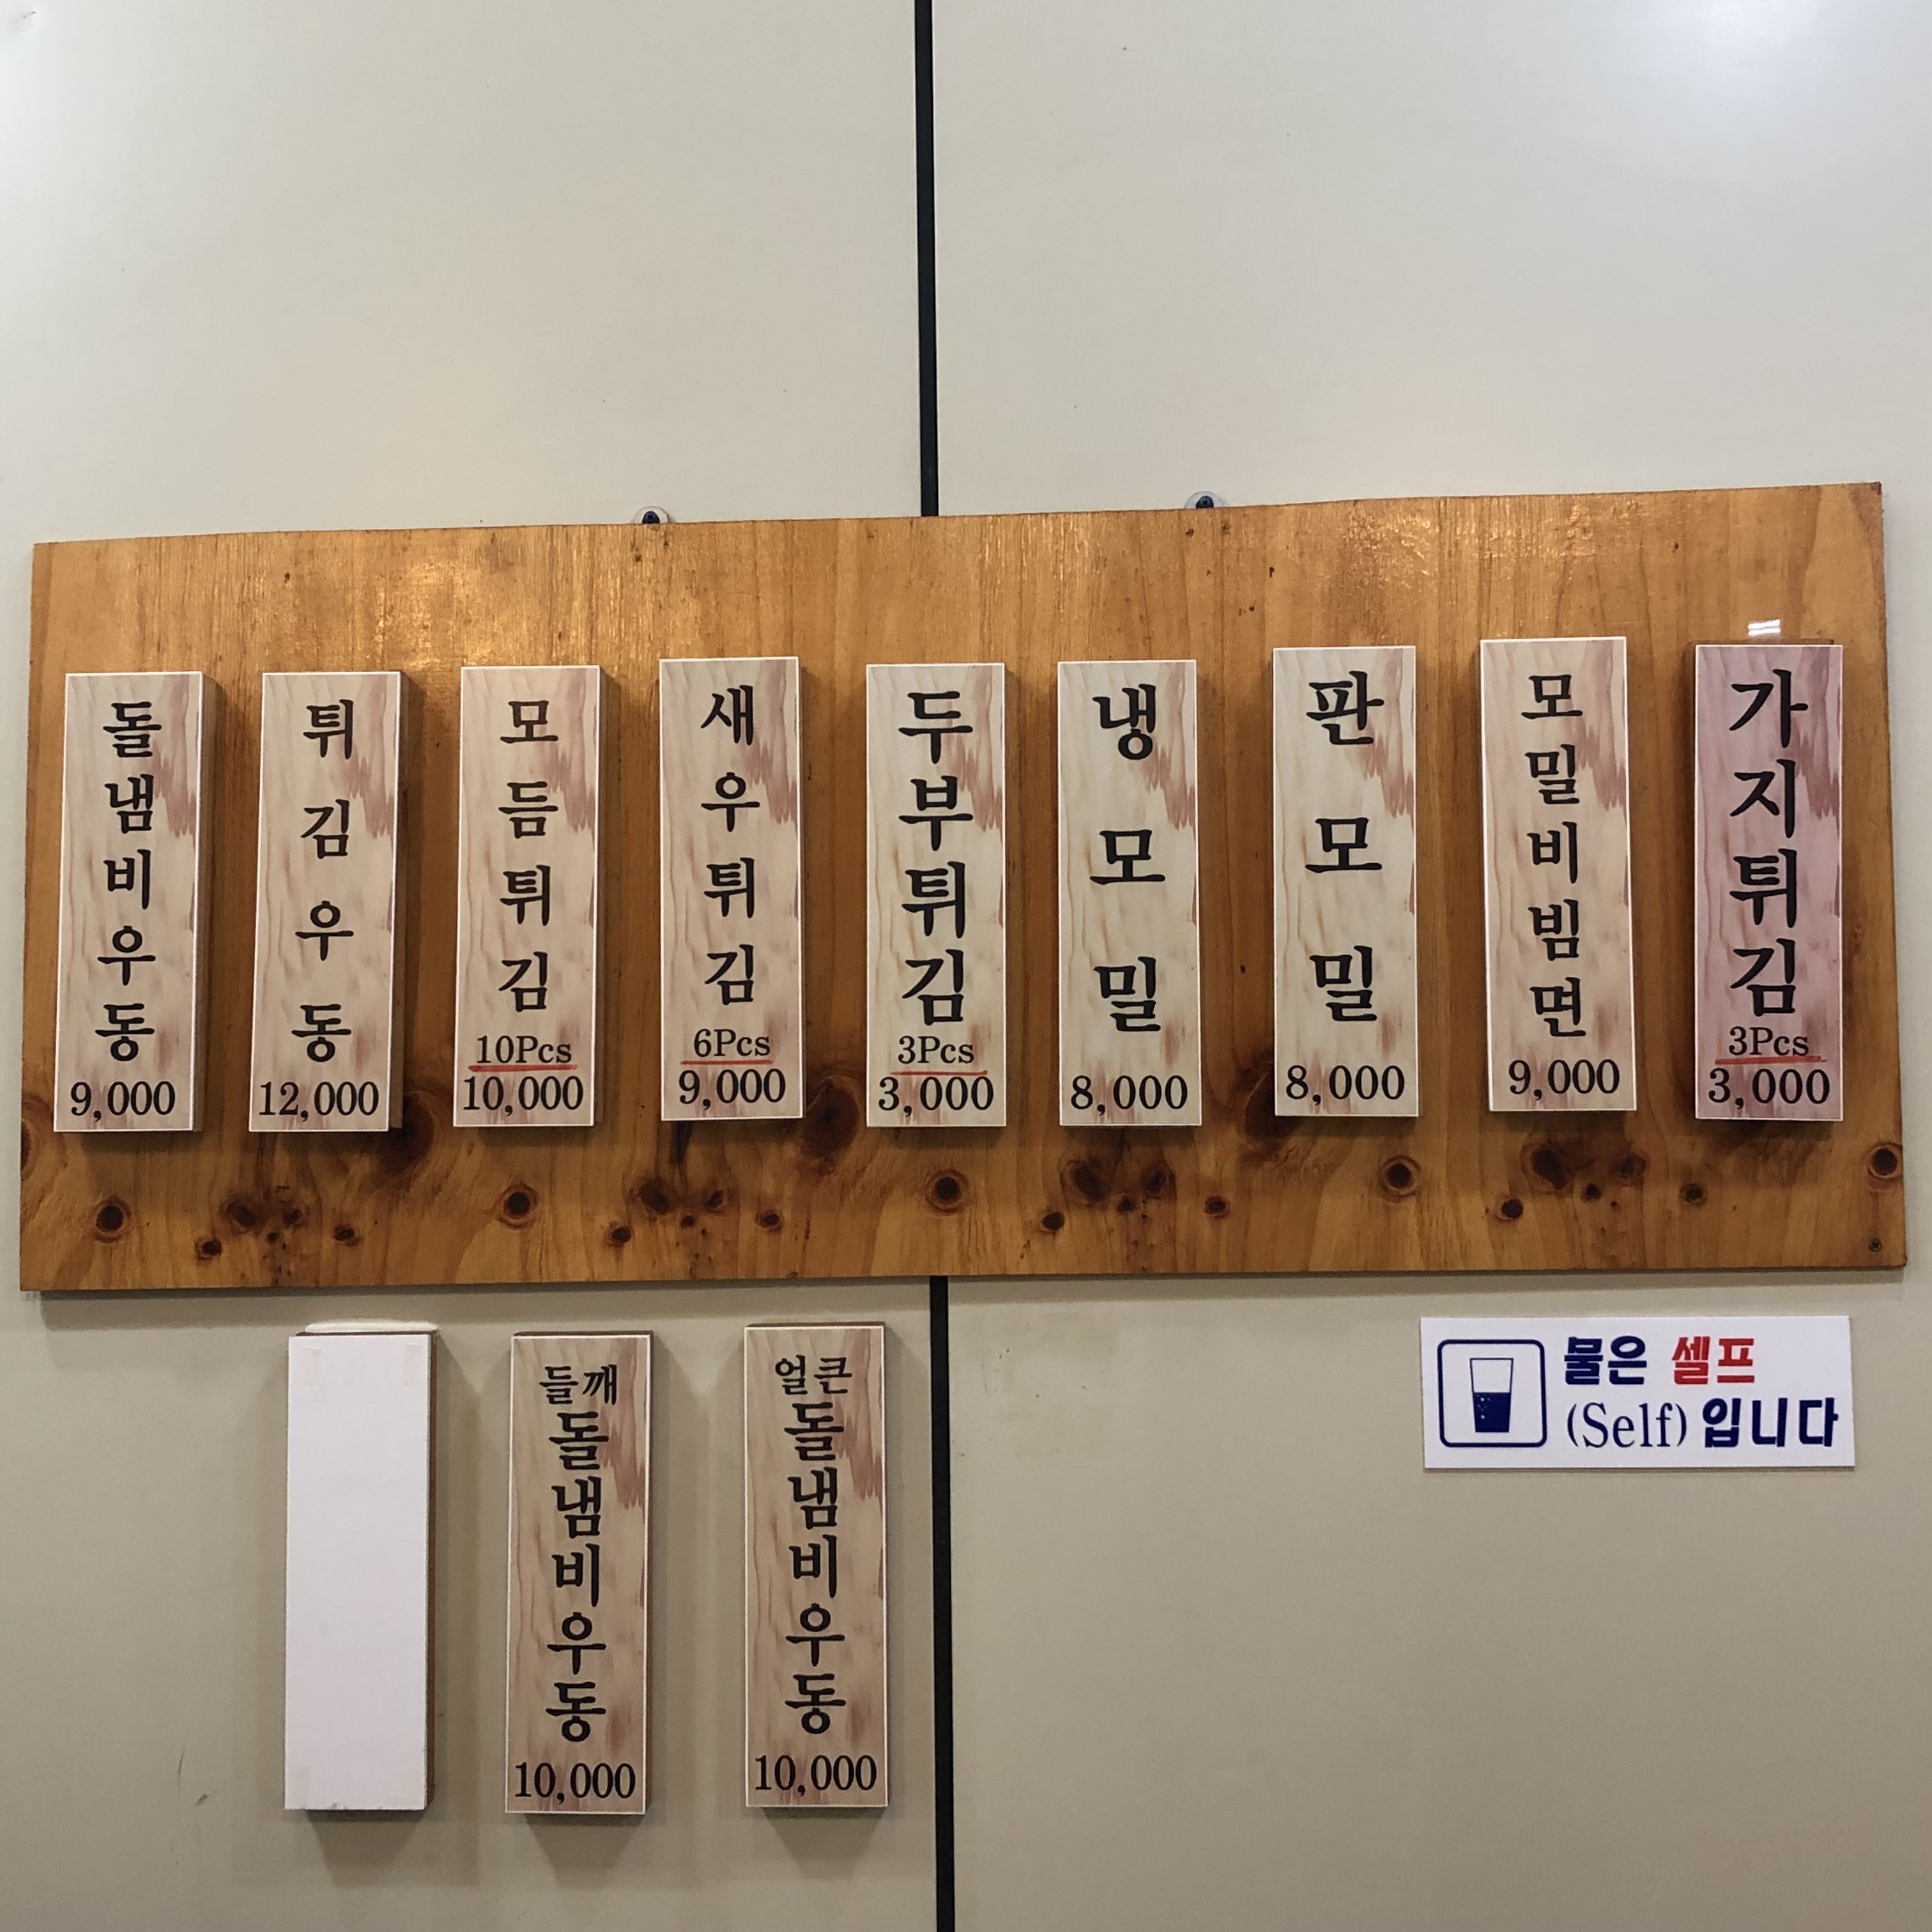 돌냄비우동
9,000
튀김우동
12,000
모듬튀김
10Pcs
10,000
새우튀김
6Pcs
9,000
두부튀김
3Pcs
3,000
냉모밀
8,000
판모밀
8,000
모밀비빔면
9,000
가지튀김
3Pcs
3,000
들깨
돌냄비우동
10,000
얼큰
돌냄비우동
10,000
물은 셀프
(Self) 입니다